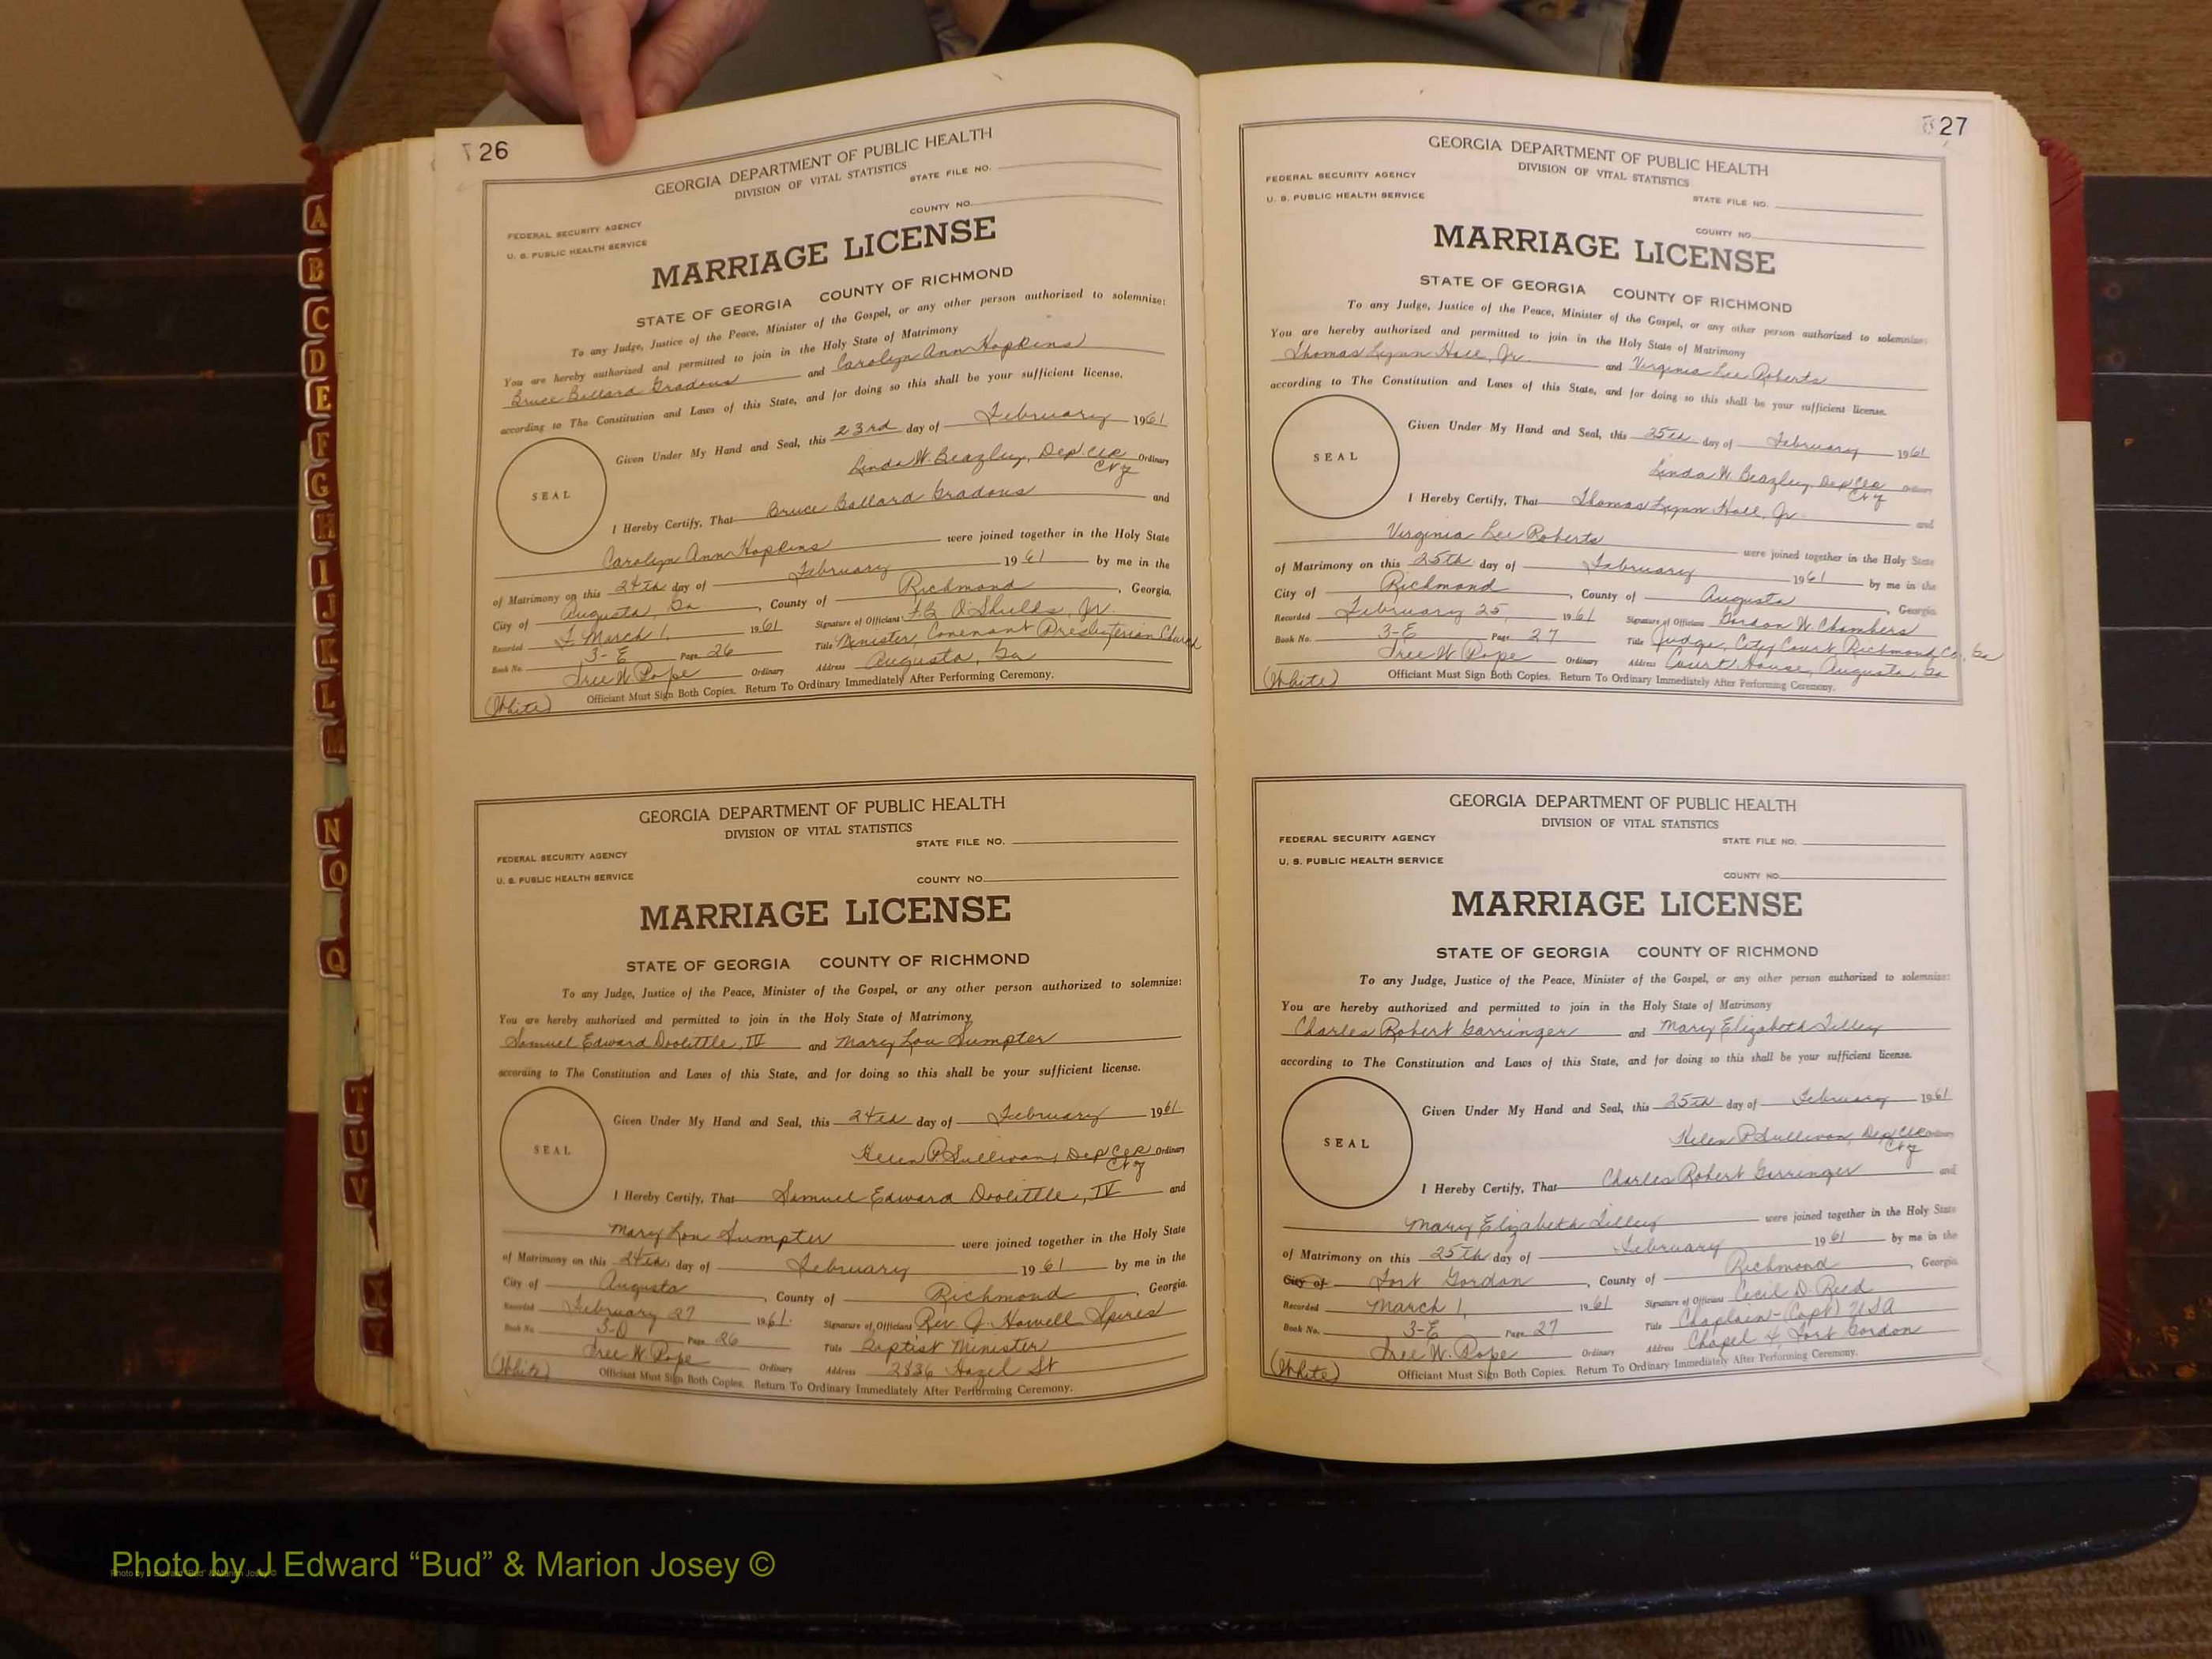 A
B
C
D
E
F
G
H
I
J
K
L
M
N
O
Q
T
U
V
Y
26
GEORGIA DEPARTMENT OF PUBLIC HEALTH
DIVISION OF VITAL STATISTICS
STATE FILE NO.
FEDERAL SECURITY AGENCY
COUNTY NO.
U. S. PUBLIC HEALTH SERVICE
MARRIAGE LICENSE
STATE OF GEORGIA COUNTY OF RICHMOND
To any Judge, Justice of the Peace, Minister of the Gospel, or any other person authorized to solemnize:
You are hereby authorized and permitted to join in the Holy State of Matrimony
Bruce Ballard Gradous and Carolyn Ann Hopkins
according to The Constitution and Laws of this State, and for doing so this shall be your sufficient license.
Given Under My Hand and Seal, this 23rd day of February 1961
Linda W. Beazley, Dep Clk Ordinary
SEAL
I Hereby Certify, That Bruce Ballard Gradous and
Carolyn Ann Hopkins were joined together in the Holy State
of Matrimony on this 24th day of February 1961 by me in the
City of Augusta, Ga, County of Richmond, Georgia.
Recorded March 1, 1961 Signature of Officiant O'Shields, Jr.
Book No. 3-E Page 26 Title Minister, Covenant Presbyterian Church
W. Pope Ordinary Address Augusta, Ga
(White) Officiant Must Sign Both Copies. Return To Ordinary Immediately After Performing Ceremony.
GEORGIA DEPARTMENT OF PUBLIC HEALTH
DIVISION OF VITAL STATISTICS
STATE FILE NO.
FEDERAL SECURITY AGENCY
U. S. PUBLIC HEALTH SERVICE
COUNTY NO.
MARRIAGE LICENSE
STATE OF GEORGIA COUNTY OF RICHMOND
To any Judge, Justice of the Peace, Minister of the Gospel, or any other person authorized to solemnize:
You are hereby authorized and permitted to join in the Holy State of Matrimony
Samuel Edward Doolittle, IV and Mary Lou Sumpter
according to The Constitution and Laws of this State, and for doing so this shall be your sufficient license.
Given Under My Hand and Seal, this 24th day of February 1961
Helen P Sullivan, Dep Clk Ordinary
SEAL
I Hereby Certify, That Samuel Edward Doolittle, IV and
Mary Lou Sumpter were joined together in the Holy State
of Matrimony on this 24th day of February 1961 by me in the
City of Augusta, County of Richmond, Georgia.
Recorded February 27 1961. Signature of Officiant Rev. J. Howell Spires
Book No. 3-D Page 26 Title Baptist Minister
W. Pope Ordinary Address 2836 Hazel St
(White) Officiant Must Sign Both Copies. Return To Ordinary Immediately After Performing Ceremony.
27
GEORGIA DEPARTMENT OF PUBLIC HEALTH
DIVISION OF VITAL STATISTICS
FEDERAL SECURITY AGENCY
U. S. PUBLIC HEALTH SERVICE
STATE FILE NO.
COUNTY NO.
MARRIAGE LICENSE
STATE OF GEORGIA COUNTY OF RICHMOND
To any Judge, Justice of the Peace, Minister of the Gospel, or any other person authorized to solemnize:
You are hereby authorized and permitted to join in the Holy State of Matrimony
Thomas Lynn Hall, Jr. and Virginia Lee Roberts
according to The Constitution and Laws of this State, and for doing so this shall be your sufficient license.
Given Under My Hand and Seal, this 25th day of February 1961
Linda W. Beazley, Dep Clk Ordinary
SEAL
I Hereby Certify, That Thomas Lynn Hall, Jr. and
Virginia Lee Roberts were joined together in the Holy State
of Matrimony on this 25th day of February 1961 by me in the
City of Richmond, County of Augusta, Georgia
Recorded February 25, 1961 Signature of Officiant Gordon W. Chambers
Book No. 3-E Page 27 Title Judge, City Court Richmond Co, Ga
W Pope Ordinary Address Court House, Augusta, Ga
(White) Officiant Must Sign Both Copies. Return To Ordinary Immediately After Performing Ceremony.
GEORGIA DEPARTMENT OF PUBLIC HEALTH
DIVISION OF VITAL STATISTICS
FEDERAL SECURITY AGENCY
STATE FILE NO.
U. S. PUBLIC HEALTH SERVICE
COUNTY NO.
MARRIAGE LICENSE
STATE OF GEORGIA COUNTY OF RICHMOND
To any Judge, Justice of the Peace, Minister of the Gospel, or any other person authorized to solemnize:
You are hereby authorized and permitted to join in the Holy State of Matrimony
Charles Robert Garringer and Mary Elizabeth Tilley
according to The Constitution and Laws of this State, and for doing so this shall be your sufficient license.
Given Under My Hand and Seal, this 25th day of February 1961
Helen P Sullivan, Dep Clk Ordinary
SEAL
I Hereby Certify, That Charles Robert Garringer and
Mary Elizabeth Tilley were joined together in the Holy State
of Matrimony on this 25th day of February 1961 by me in the
City of Fort Gordon, County of Richmond, Georgia
Recorded March 1, 1961 Signature of Officiant Cecil D. Reed
Book No. 3-E Page 27 Title Chaplain-(Capt) USA
W. Pope Ordinary Address Chapel 4 Fort Gordon
(White) Officiant Must Sign Both Copies. Return To Ordinary Immediately After Performing Ceremony.
Photo by J Edward “Bud” & Marion Josey ©
Photo by J Edward “Bud” & Marion Josey ©